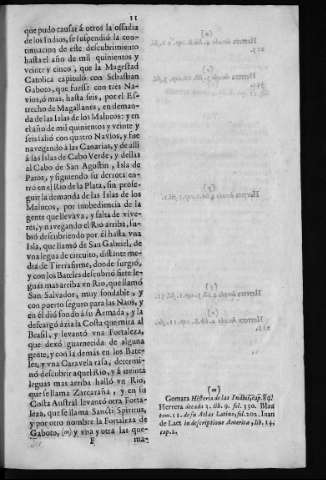 11
que pudo causar á otros la ossadia
de los Indios, se suspendiò la con-
tinuacion de este descubrimiento
hasta el año de mil quinientos y
veinte y cinco, que la Magestad
Catolica capitulò con Sebastian
Gaboto, que fuesse con tres Na-
vios, ó mas, hasta seis, por el Es-
trecho de Magallanes, en deman-
da de las Islas de los Malucos: y en
el año de mil quinientos y veinte y
seis saliò con quatro Navios, y fue
navegando á las Canarias, y de alli
á las Islas de Cabo Verde, y dellas
al Cabo de San Agustin, Isla de
Patos, y siguiendo su derrota en-
trò en el Rio de la Plata, sin prose-
guir la demanda de las Islas de los
Malucos, por inobediencia de la
gente que llevava, y falta de vive-
res, y navegando el Rio arriba, su-
biò descubriendo por él hasta vna
Isla, que llamò de San Gabriel, de
vna legua de circuito, distante me-
dia de Tierra firme, donde surgiò,
y con los Bateles descubriò siete le-
guas mas arriba vn Rio, que llamò
San Salvador, muy fondable, y
con puerto seguro para las Naos, y
en él diò fondo á su Armada, y la
descargò ázia la Costa que mira al
Brasil, y levantò vna Fortaleza,
que dexò guarnecida de alguna
gente, y con la demàs en los Bate-
les, y vna Caravela rasa, determi-
nò descubrir aquel Rio, y á treinta
leguas mas arriba hallò vn Rio,
que se llama Zarcaraña, y en su
Costa Austral levantò otra Forta-
leza, que se llama Sancti Spiritus,
y por otro nombre la Fortaleza de
Gaboto, (m) y vna y otra las que
F
ma-
(m)
Gomara Historia de las Indias, cap. 89.
Herrera decada 3. lib. 9. fol. 330. Blau
tom. 11. de su Atlas Latino, fol. 202. Iuan
de Laet in descriptione America, lib. 14.
cap. 2.